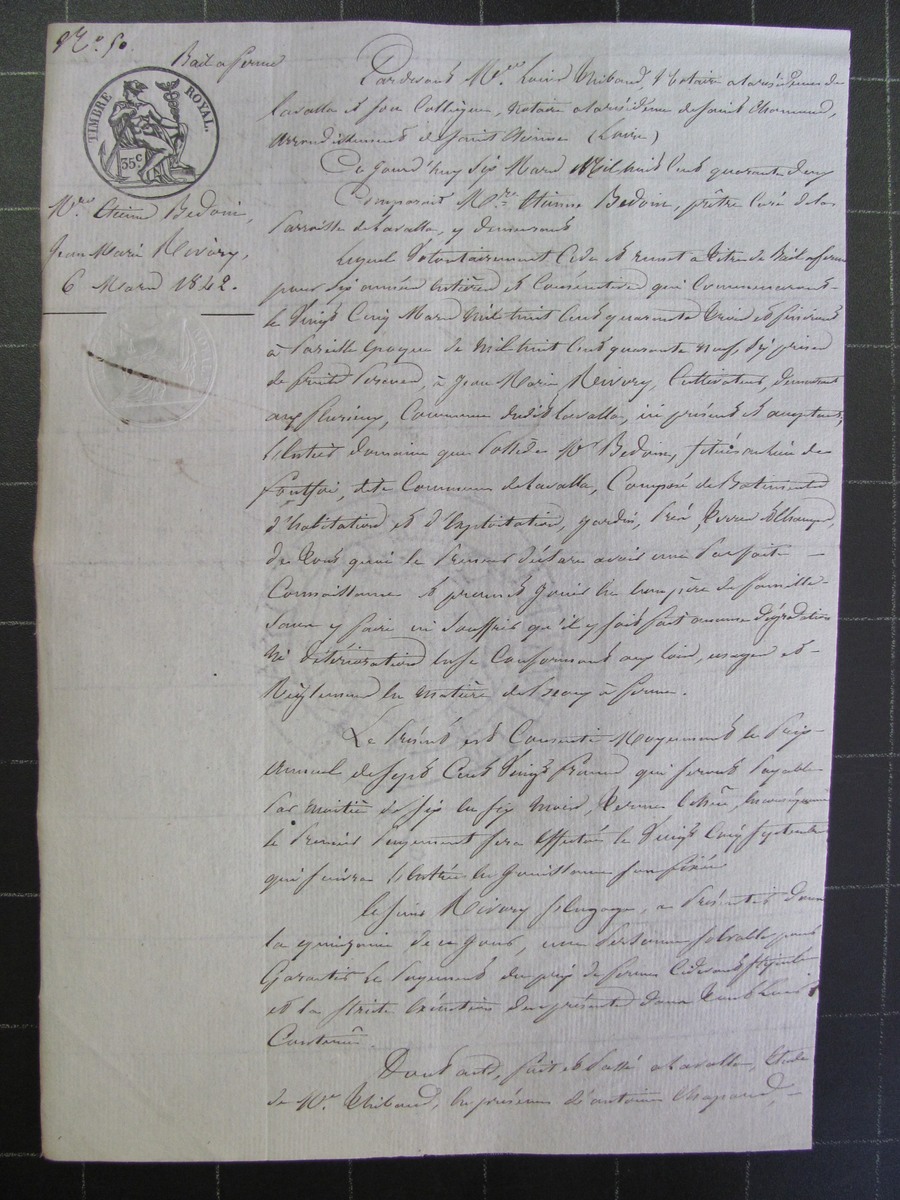 No. 50.
Bail a ferme
TIMBRE ROYAL.
35c
Mre Etienne Bedoin,
Jean Marie Rivory,
6 Mars 1842.
Pardevant Me Louis Thibaud, Notaire a la résidence de
Lavalla et son Collègue, notaire a la résidence de Saint Chamond,
arrondissement de Saint Etienne (Loire)
Ce Jourd'huy Six Mars Mil huit Cent quarante deux
Comparait Mre Etienne Bedoin, prêtre Curé de la
Parroisse de Lavalla, y demeurant
Lequel Volontairement Cède et remet a Titre de Bail a ferme
pour Six années entières et Consécutives qui Commenceront
le Vingt Cinq Mars Mil huit Cent quarante trois et finiront
à Pareille Epoque de Mil huit Cent quarante neuf, Sy prises
de fruits Percus, à Jean Marie Rivory, Cultivateur, demeurant
aux fleurieux, Commune dudit Lavalla, ici présent et acceptant,
l'Entier domaine que Possède Mr Bedoin, Situé au lieu de
, dite Commune de Lavalla, Composé de Batiments
d'habitation et d'Exploitation, jardin, Pré, Terres et Champs,
de tout quoi le Preneur déclare avoir une Parfaite
Connaissance et promet Jouir en bon père de famille
Sans y faire ni Souffrir qu'il y Soit fait aucune dégradation
Ni détérioration en se Conformant aux loix, usages et
Règlements en matière de Baux à ferme.
Le Présent est Consenti Moyennant le Prix
annuel de Sept Cent Vingt francs qui Seront Payable
Par moitié de Six en Six mois, Terme Echu, en conséquence
le Premier Payement Sera effectué le Vingt Cinq Septembre
qui Suivra l'Entrée en Jouissance Sus fixée
Le Sieur Rivory S'Engage, a Présenter dans
la quinzaine de ce Jour, une Personne Solvable pour
Garantir le Payement du prix de ferme Cidessus Stipulé
et la Stricte Exécution du présent dans tout Son
Contenu.
Dont acte, fait et Passé a Lavalla, Etude
de Me Thibaud, En présence d'antoine Chapard,